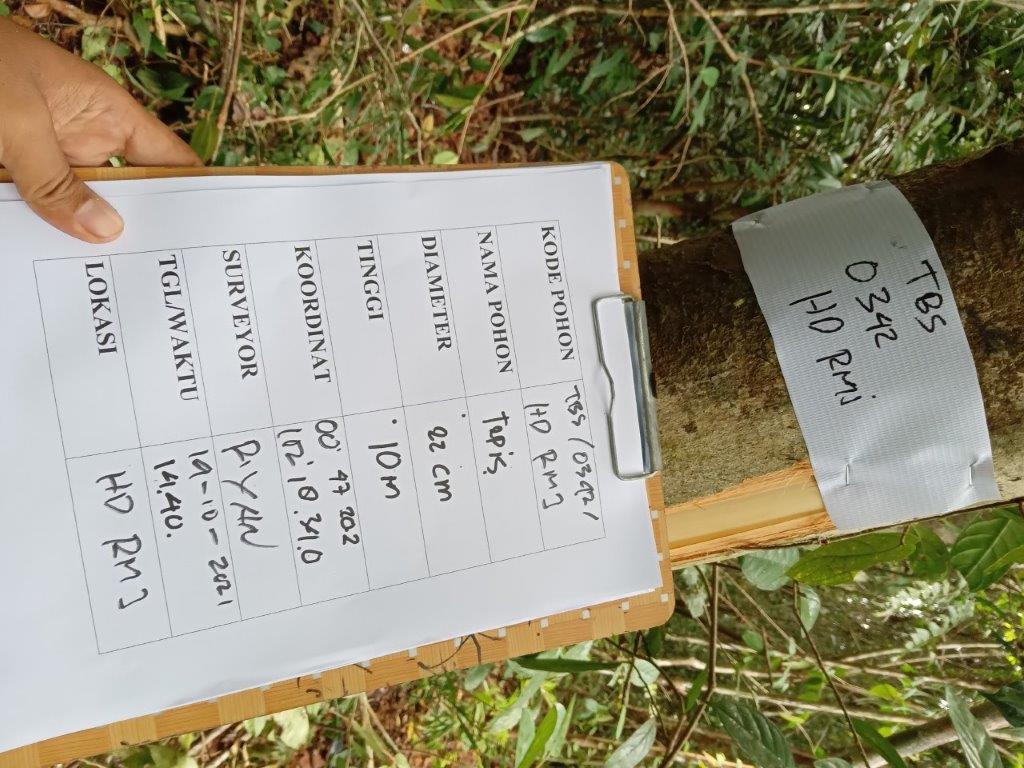 TBS
0342
HD RMJ
KODE POHON TBS/0342/
HD RMJ
NAMA POHON Tepis
DIAMETER 22 cm
TINGGI 10 m
KOORDINAT 00° 47 202
102° 18.34.0
SURVEYOR RIYAN
TGL/WAKTU 19-10-2021
14.40.
LOKASI HD RMJ